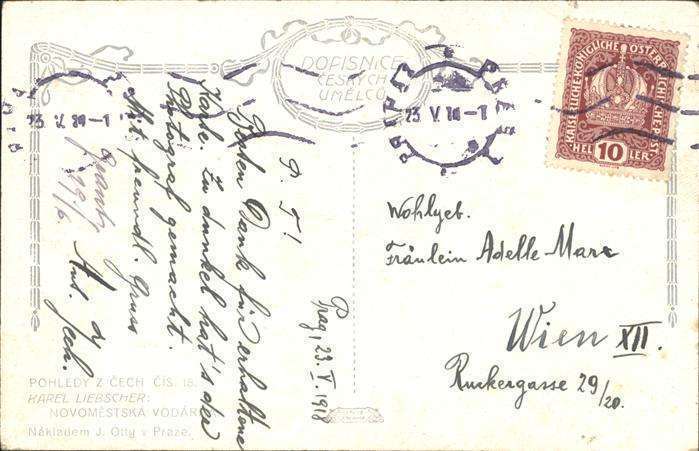 DOPISNICE
ČESKÝCH
UMĚLCŮ
KAISERLICHE KÖNIGLICHE ÖSTERREICHISCHE POST
10
HELLER
23. V. 18-1
23 V 18-1
Prag, 23. V. 1918
P. T.!
Besten Dank für erhaltene
Karte. Zu dunkel hat's der
Photograf gemacht.
Mit freundl. Gruss
Ant.
Wohlgeb.
Fräulein Adelle Marx
Wien XII.
Ruckergasse 29/20.
POHLEDY Z ČECH ČÍS. 18.
KAREL LIEBSCHER:
NOVOMĚSTSKÁ VODÁR
Nákladem J. Otty v Praze.